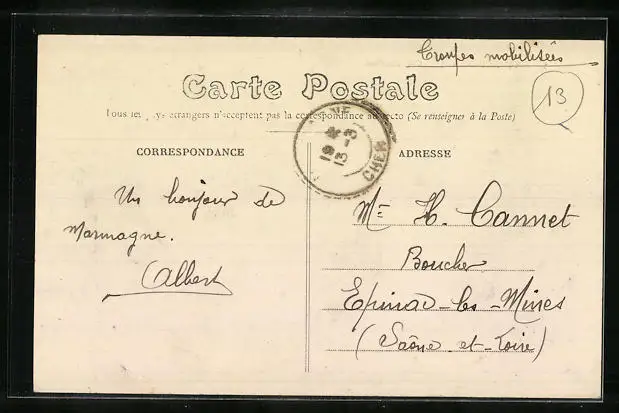 Troupes mobilisées
13
Carte Postale
Tous les pays étrangers n'acceptent pas la correspondance au recto (Se renseigner à la Poste)
CORRESPONDANCE
ADRESSE
NE
19
13 - 3
CHER
Un bonjour de
Marmagne.
Albert
Mr H. Cannet
Boucher
Epinac-les-Mines
(Saône-et-Loire)